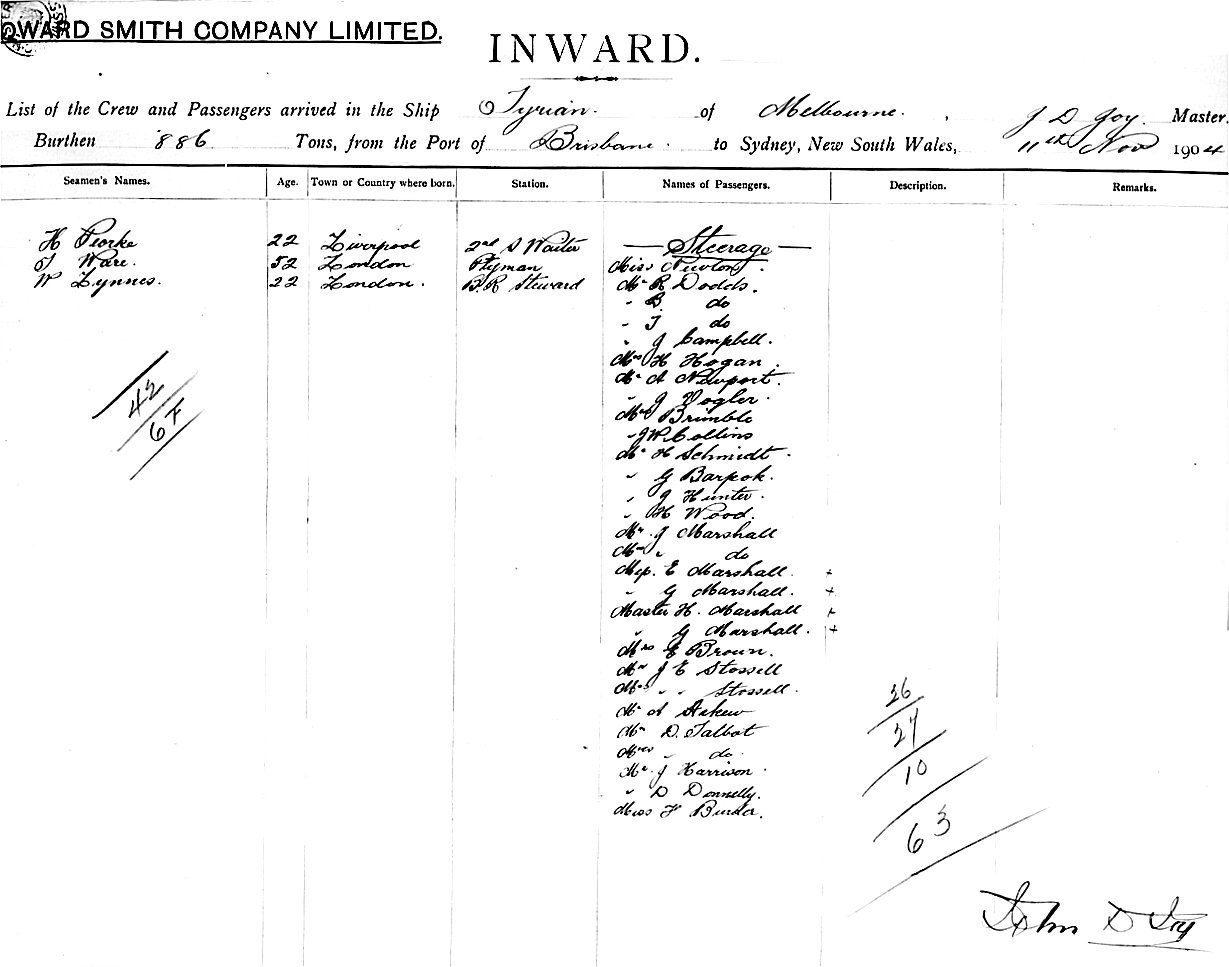 OWARD SMITH COMPANY LIMITED.
INWARD.
List of the Crew and Passengers arrived in the Ship Tyrian. of Melbourne. J D Joy. Master.
Burthen 886 Tons, from the Port of Brisbane. to Sydney, New South Wales, 11th Nov 1904
Seamen's Names. Age. Town or Country where born. Station. Names of Passengers. Description. Remarks.
H Peorke 22 Liverpool 2nd S Waiter — Steerage —
T Ware. 52 London Ptyman Miss Newton.
W Lynnes. 22 London. B.R Steward Mr R Dodds.
" B. do
" T do
" J Campbell.
Mrs H Hogan.
Mr A Newport.
" J Vogler.
Mrs Brimble
" J W Collins
Mr H Schmidt.
" G Barpok.
" J Hunter.
" H Wood.
Mr J Marshall
Mrs " do
Miss. E Marshall. +
" G Marshall. +
Master H. Marshall +
" G Marshall. +
Mrs E Brown.
Mr J E Stossell
Mrs " " Stossell.
Mr A Askew
Mr D. Talbot
Mrs " do.
Mr J Harrison.
" D Donnelly.
Miss F
42
67
26
27
10
63
John D Joy